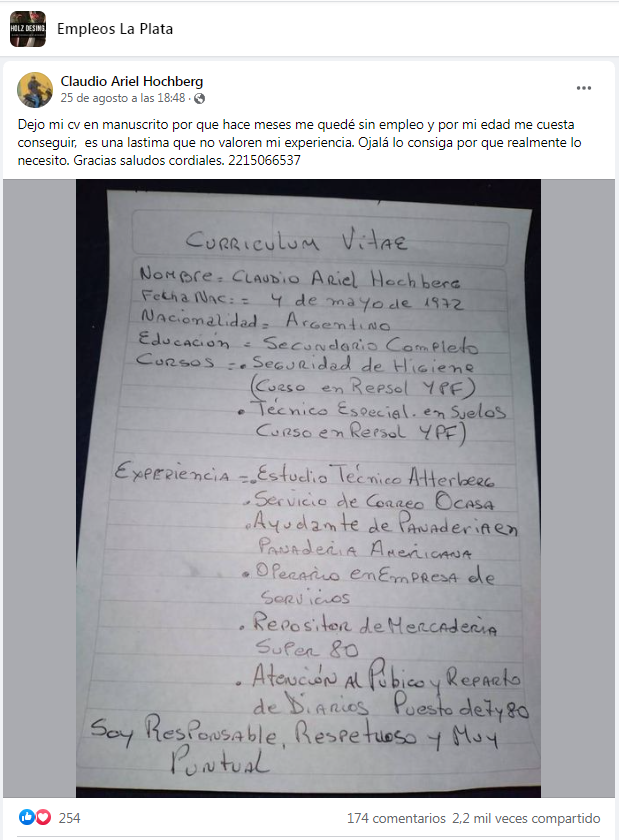 HOLZ DESING
Empleos La Plata
Claudio Ariel Hochberg
25 de agosto a las 18:48 ·
Dejo mi cv en manuscrito por que hace meses me quedé sin empleo y por mi edad me cuesta
conseguir, es una lastima que no valoren mi experiencia. Ojalá lo consiga por que realmente lo
necesito. Gracias saludos cordiales. 2215066537
Curriculum Vitae
Nombre = Claudio Ariel Hochberg
Fecha Nac: = 4 de mayo de 1972
Nacionalidad = Argentino
Educación = Secundario Completo
Cursos = • Seguridad de Higiene
(Curso en Repsol YPF)
• Técnico Especial. en Suelos
Curso en Repsol YPF)
Experiencia = • Estudio Técnico Atterberg
• Servicio de Correo Ocasa
• Ayudante de Panaderia en
Panaderia Americana
• Operario en Empresa de
Servicios
• Repositor de Mercaderia
Super 80
• Atención al Púbico y Reparto
de Diarios Puesto de 7 y 80
Soy Responsable, Respetuoso y Muy
Puntual
254
174 comentarios 2,2 mil veces compartido